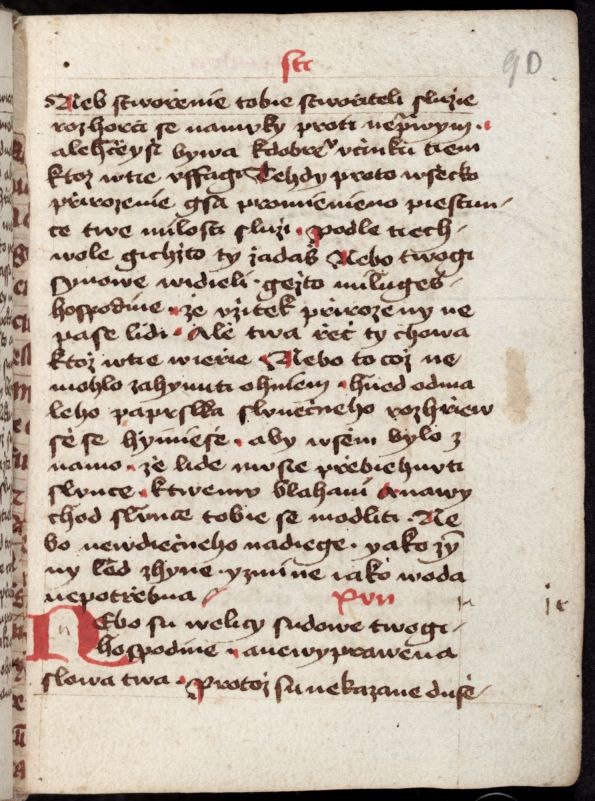 stc
90
Neb stworzenie tobie stworiteli sluzie
rozhorči se namuky proti nepřwym ·
alehčeyši bywa kdobre͛ vcinku tiem
ktoz wtie vffagi Tehdy proto wšecko
přirozenie gsa promienieno piestun-
ce twe milosti sluzi · podle tiech-
wole gichžto ty žadaš Nebo twogi
synowe widieli · gežto miluges-
hospodine · že vžitek přirozeny ne
pase lidi · Ale twa řeč ty chowa
ktož wtie wierie Nebo to což ne
mohlo zahynuti ohniem · hned odma
leho paprslka slunečneho rozhřiew
še se hynieše · aby wsem bylo z
namo · že lide musie přebiehnuti
slunce · ktwemu blahani Anawy
chod slunce tobie se modliti · Ne
bo newdiečneho nadiege · yako zy̅
ny led zhyne · yzmine iako woda
nepotřebna
xvii
Nebo su welicy sudowe twogi-
hospodine · anewyprawena
slowa twa · protož su nekazane duše-